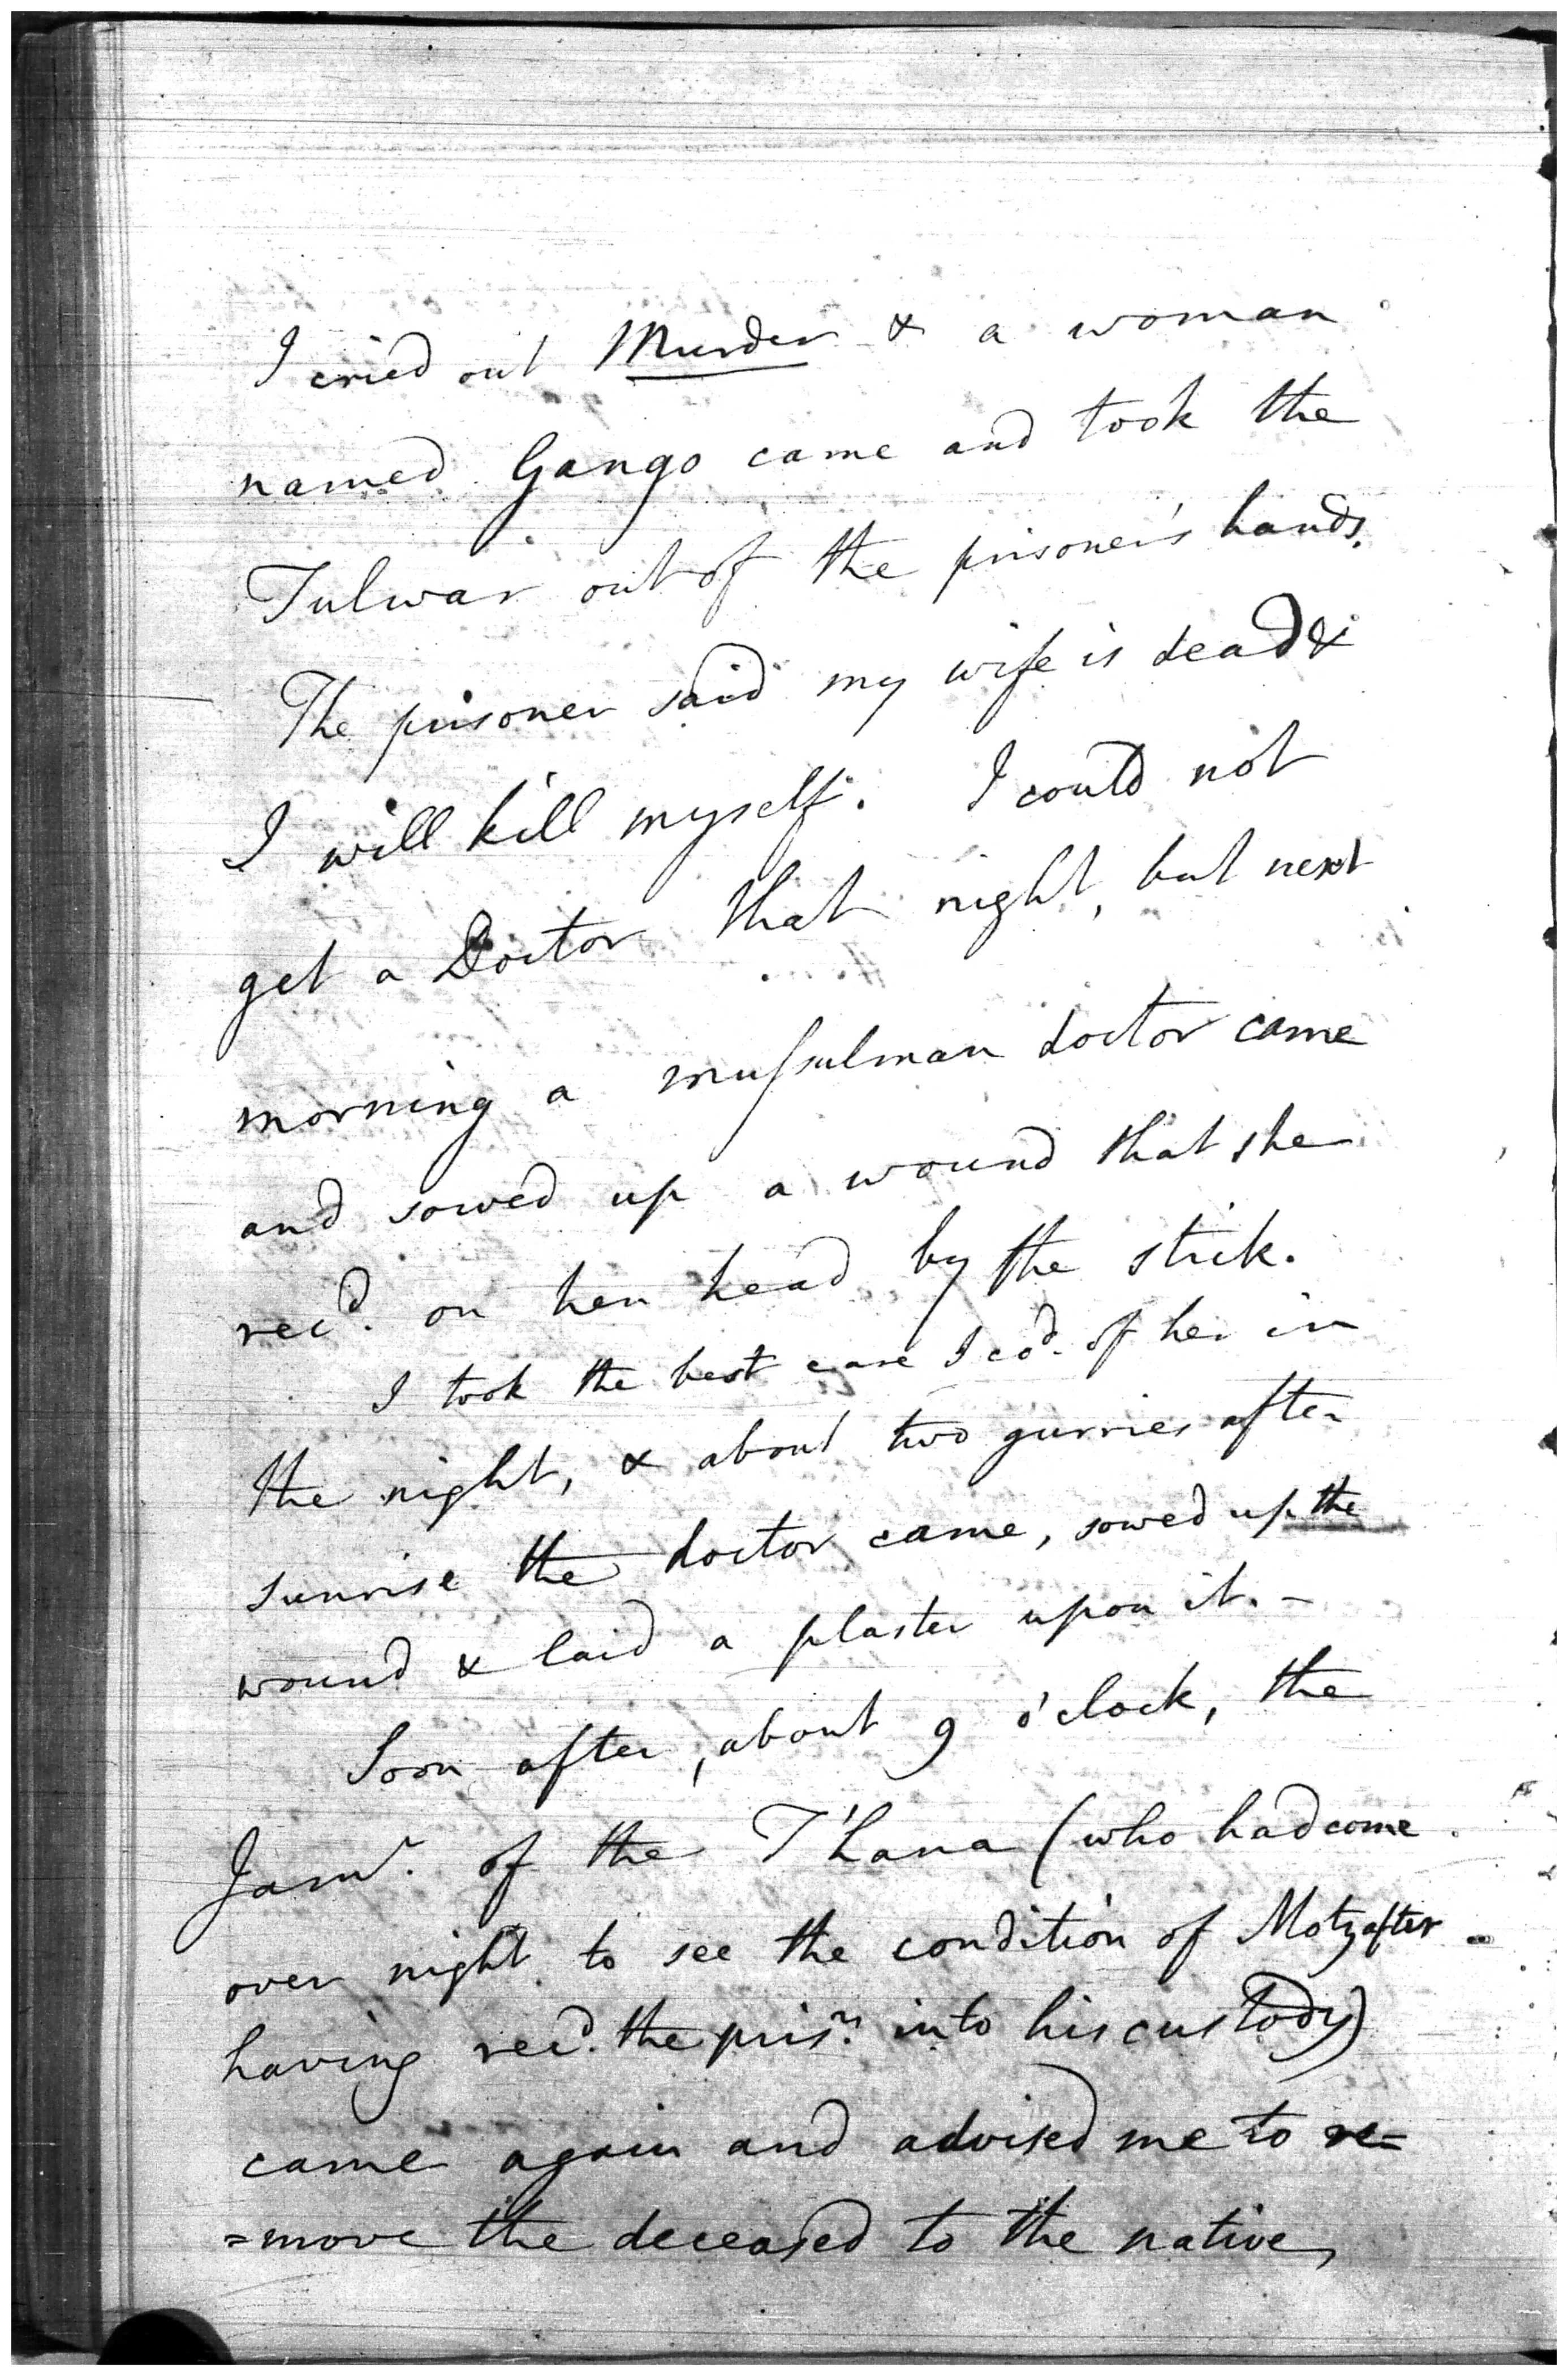 I cried out Murder & a woman
named Gango came and took the
Tulwar out of the prisoner's hands.
The prisoner said my wife is dead &
I will kill myself. I could not
get a Doctor that night, but next
morning a mufsulman doctor came
and sowed up a wound that she
recd. on her head by the stick.
I took the best care I cod. of her in
the night, & about two gurries after
sunrise the doctor came, sowed up the
wound & laid a plaster upon it. -
Soon after, about 9 o'clock, the
Jamr. of the T'hana (who had come
over night to see the condition of Moty after
having recd. the prisr. into his custody)
came again and advised me to re=
=move the deceased to the native